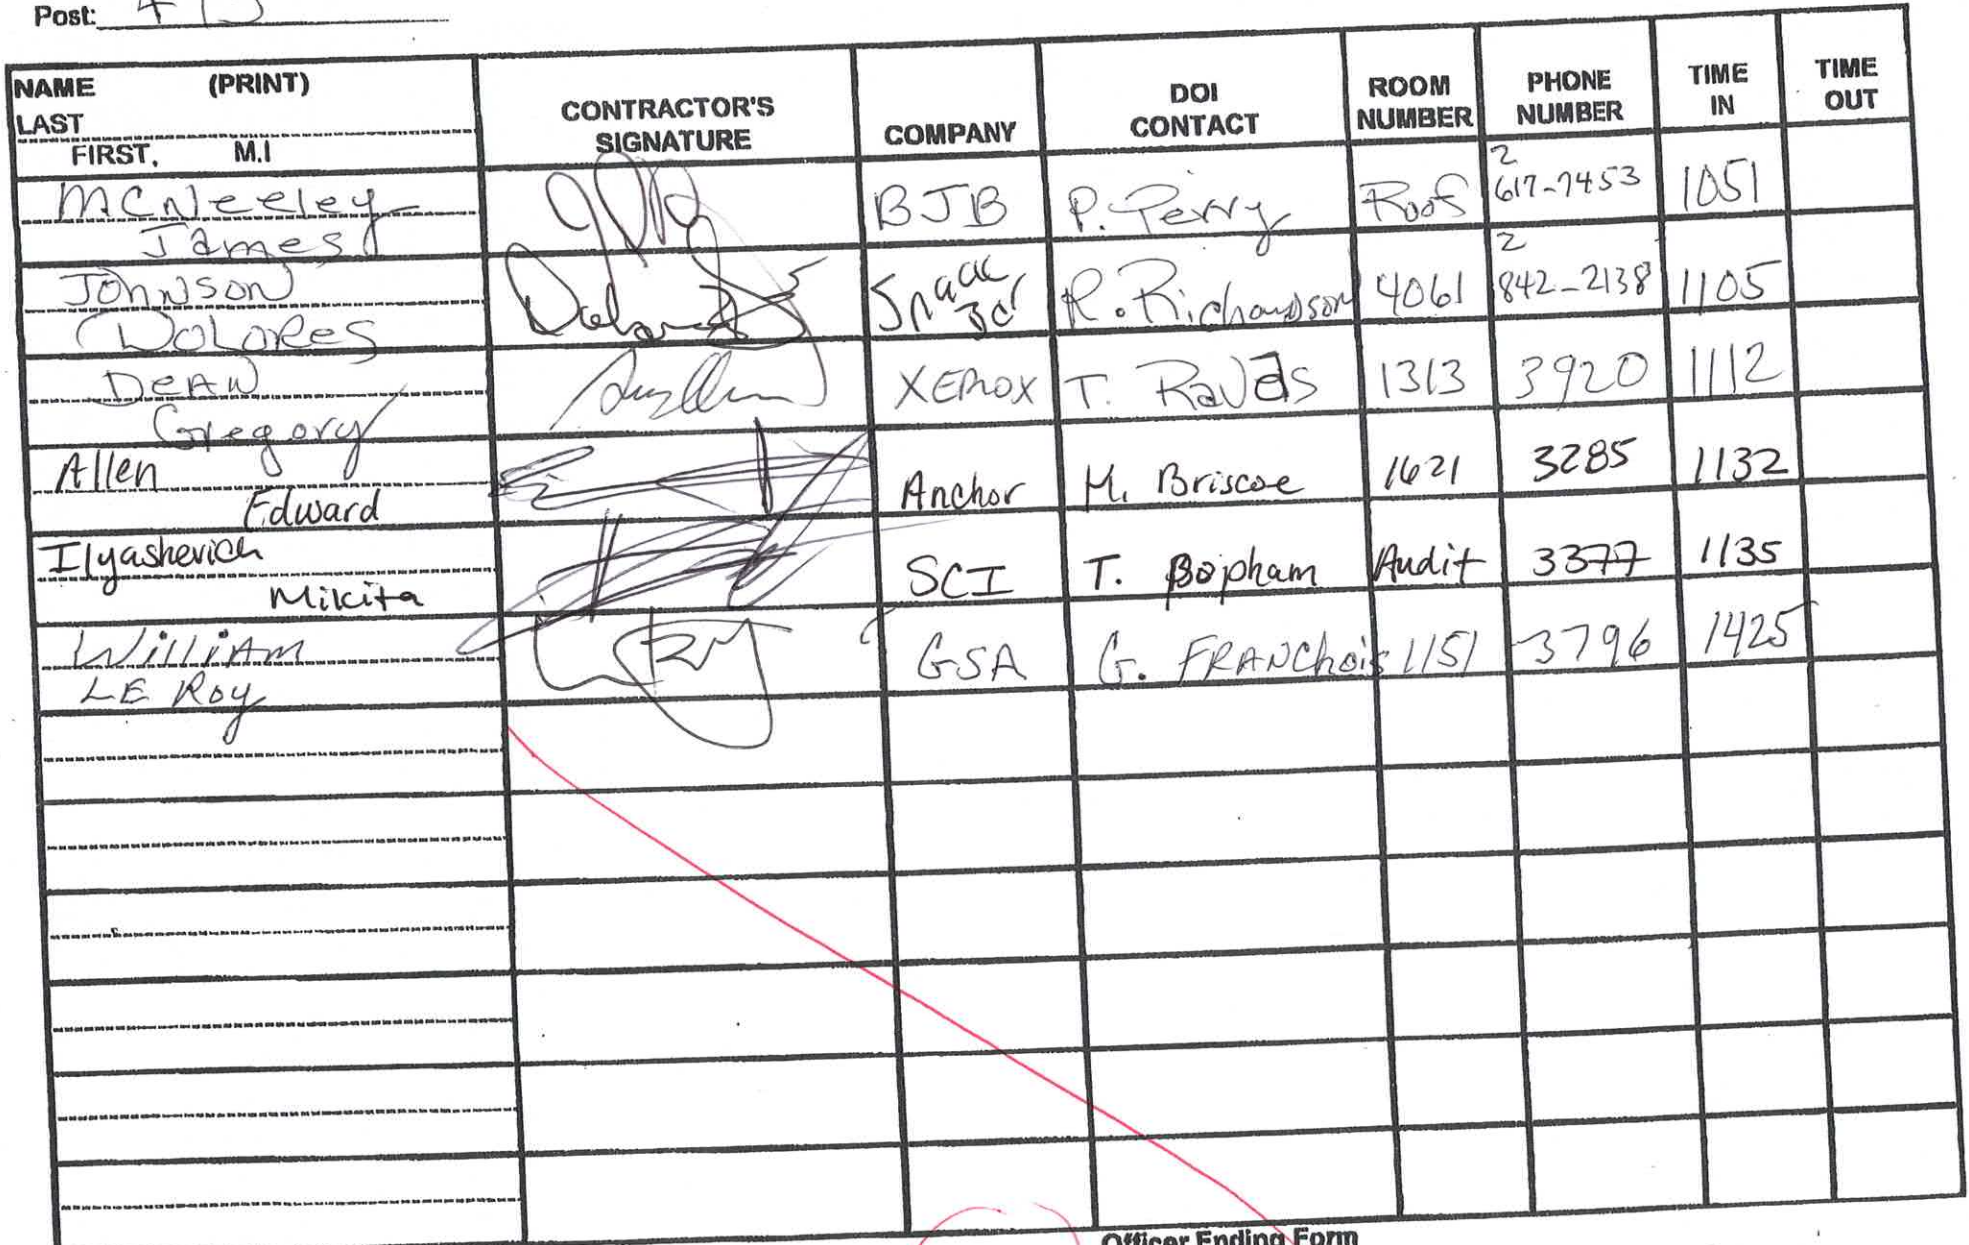 Post:
NAME (PRINT)
LAST
FIRST, M.I
CONTRACTOR'S
SIGNATURE
COMPANY
DOI
CONTACT
ROOM
NUMBER
PHONE
NUMBER
TIME
IN
TIME
OUT
McNeeley
James
BJB P. Perry Roof 2 617-7453 1051
Johnson
Dolores
R. Richardson 4061 2 842-2138 1105
Dean
Gregory
XEROX T. 1313 3920 1112
Allen
Edward
Anchor M. Briscoe 1621 3285 1132
Ilyashevich
Mikita
SCI T. Bopham Audit 3377 1135
William
LE Roy
GSA G. FRANChois 1151 3796 1425
Officer Ending Form